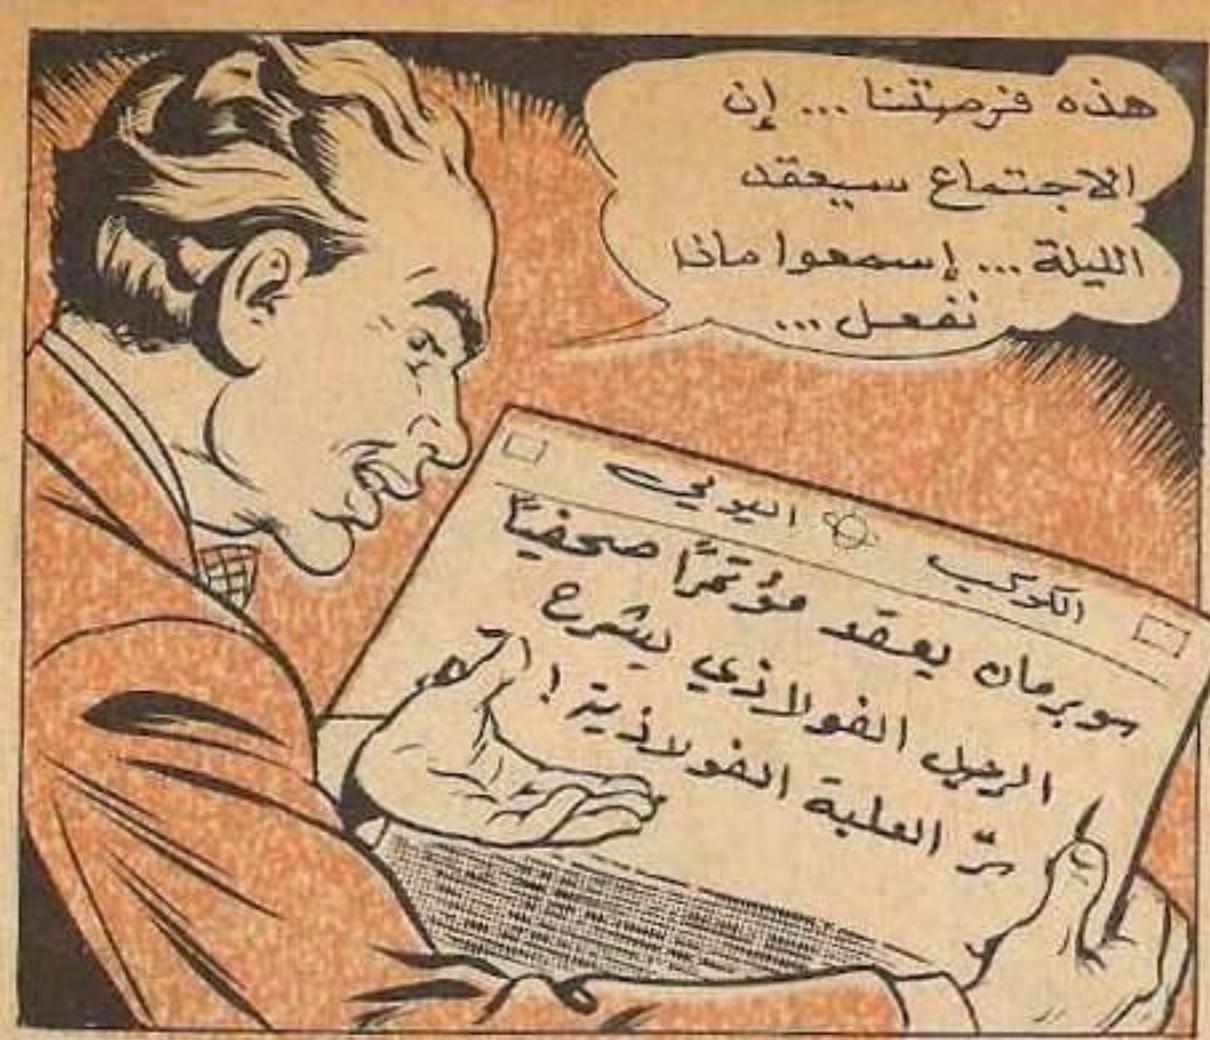 هذه فرصتنا ... إن
الاجتماع سيعقد
الليلة ... إسمعوا ماذا
نفعل ...
الكوكب اليومي
سوبرمان يعقد مؤتمرًا صحفيًا
الرجل الفولاذي يشرح
سرّ العلبة الفولاذية !